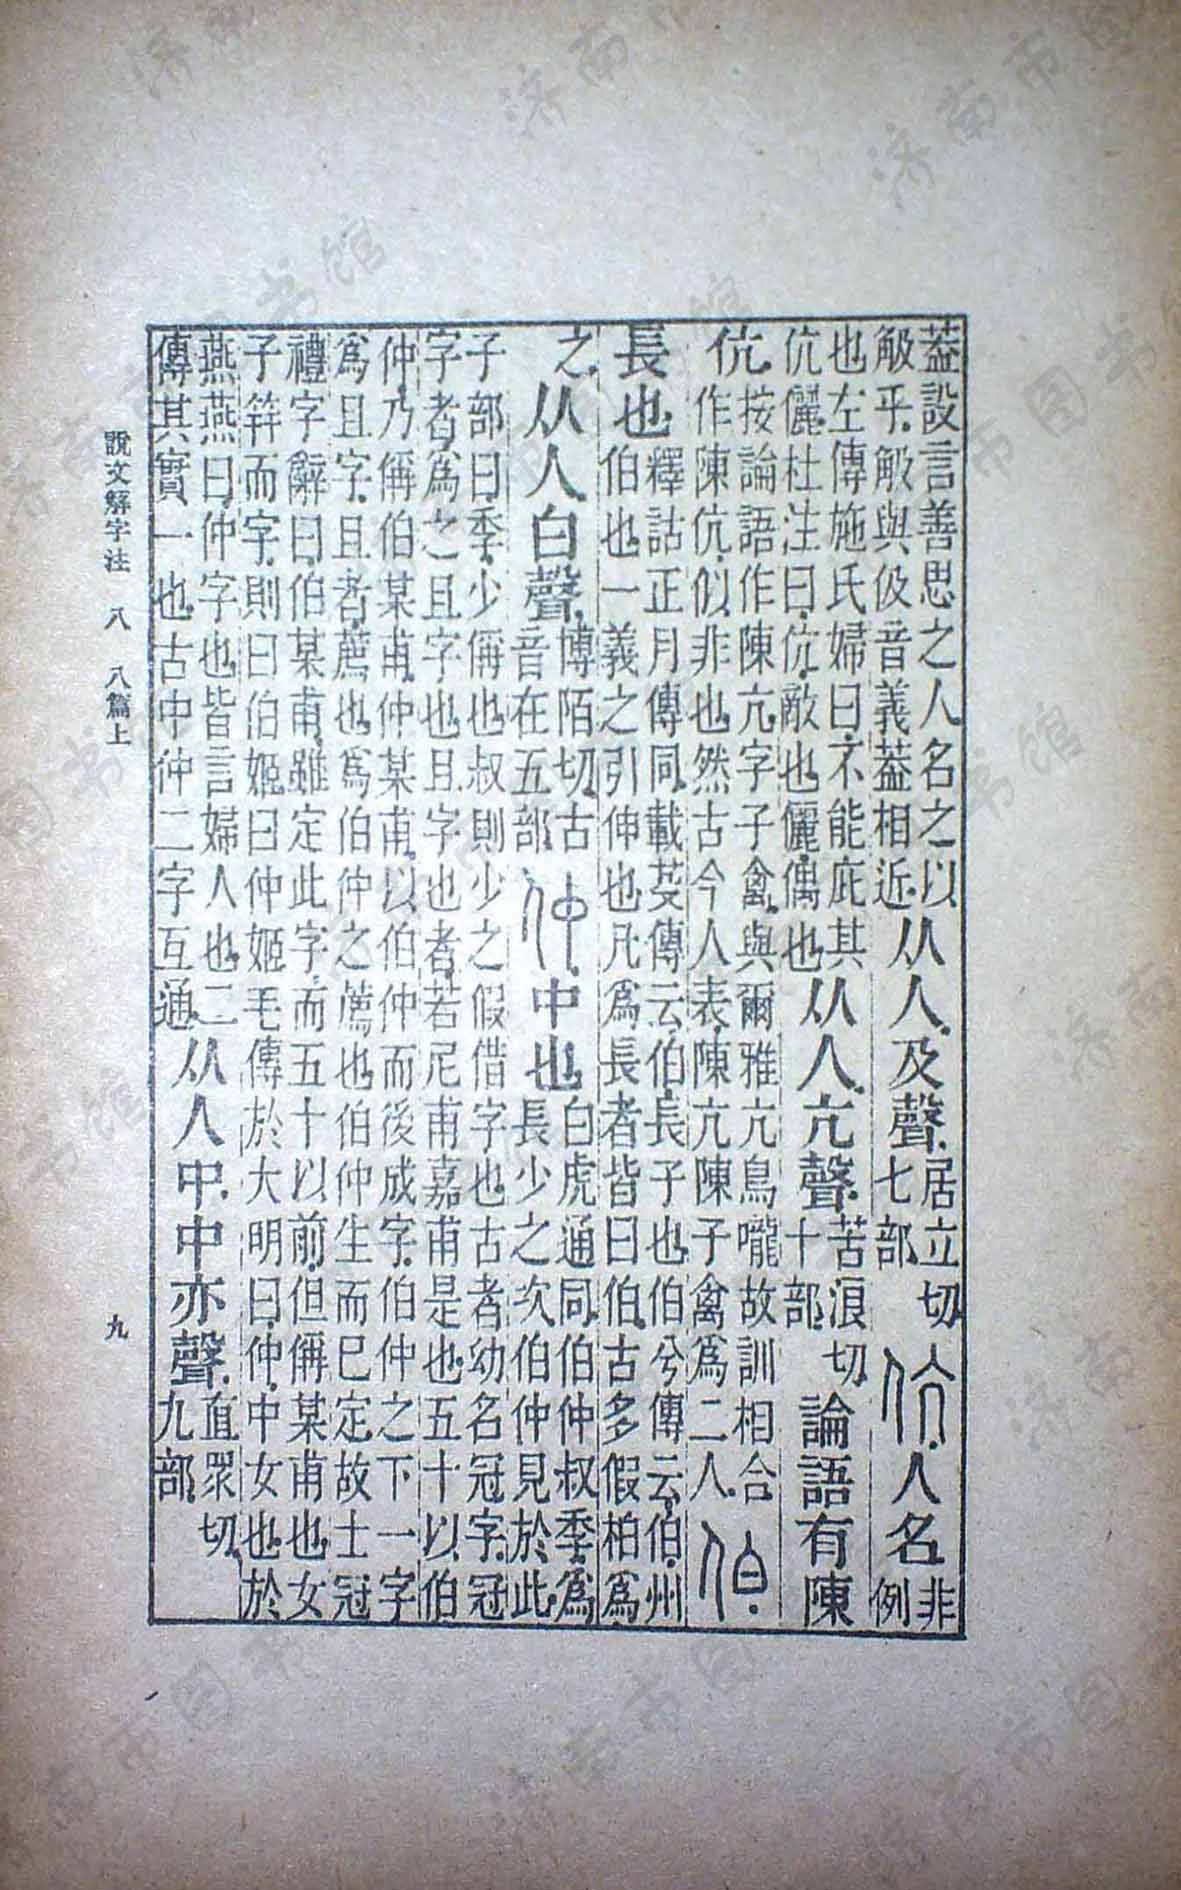 葢設言善思之人名之以觙乎觙與伋音義葢相近从人及聲居立切七部伉人名非例
也左傳施氏婦曰不能庇其伉儷杜注曰伉敵也儷偶也从人亢聲苦浪切十部論語有陳
伉按論語作陳亢字子禽與爾雅亢鳥嚨故訓相合作陳伉似非也然古今人表陳亢陳子禽爲二人伯
長也釋詁正月傳同載芟傳云伯長子也伯兮傳云伯州伯也一義之引伸也凡爲長者皆曰伯古多假柏爲
之从人白聲博陌切古音在五部仲中也白虎通同伯仲叔季爲長少之次伯仲見於此
子部曰季少偁也叔則少之假借字也古者幼名冠字冠
字者爲之且字也且字也者若尼甫嘉甫是也五十以伯
仲乃偁伯某甫仲某甫以伯仲而後成字伯仲之下一字
爲且字且者薦也爲伯仲之薦也伯仲生而巳定故士冠
禮字辭曰伯某甫雖定此字而五十以前但偁某甫也女
子笄而字則曰伯姬曰仲姬毛傳於大明曰仲中女也於
燕燕曰仲字也皆言婦人也二傳其實一也古中仲二字互通从人中中亦聲直眾切九部
說文解字注 八 八篇上 九
济南市图书馆